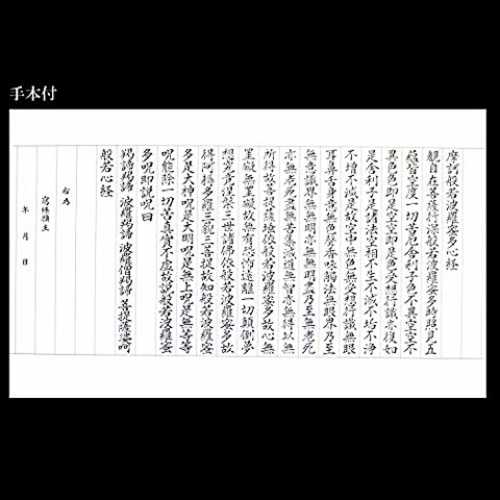 手本付
摩訶般若波羅蜜多心経
観自在菩薩行深般若波羅蜜多時照見五
蘊皆空度一切苦厄舎利子色不異空空不
異色色即是空空即是色受想行識亦復如
是舎利子是諸法空相不生不滅不垢不浄
不増不減是故空中無色無受想行識無眼
耳鼻舌身意無色声香味触法無眼界乃至
無意識界無無明亦無無明尽乃至無老死
亦無老死尽無苦集滅道無智亦無得以無
所得故菩提薩埵依般若波羅蜜多故心無
罣礙無罣礙故無有恐怖遠離一切顛倒夢
想究竟涅槃三世諸佛依般若波羅蜜多故
得阿耨多羅三藐三菩提故知般若波羅蜜
多是大神呪是大明呪是無上呪是無等等
呪能除一切苦真實不虚故説般若波羅蜜
多呪即説呪曰
羯諦羯諦 波羅羯諦 波羅僧羯諦 菩提薩婆訶
般若心経
右為
年 月 日